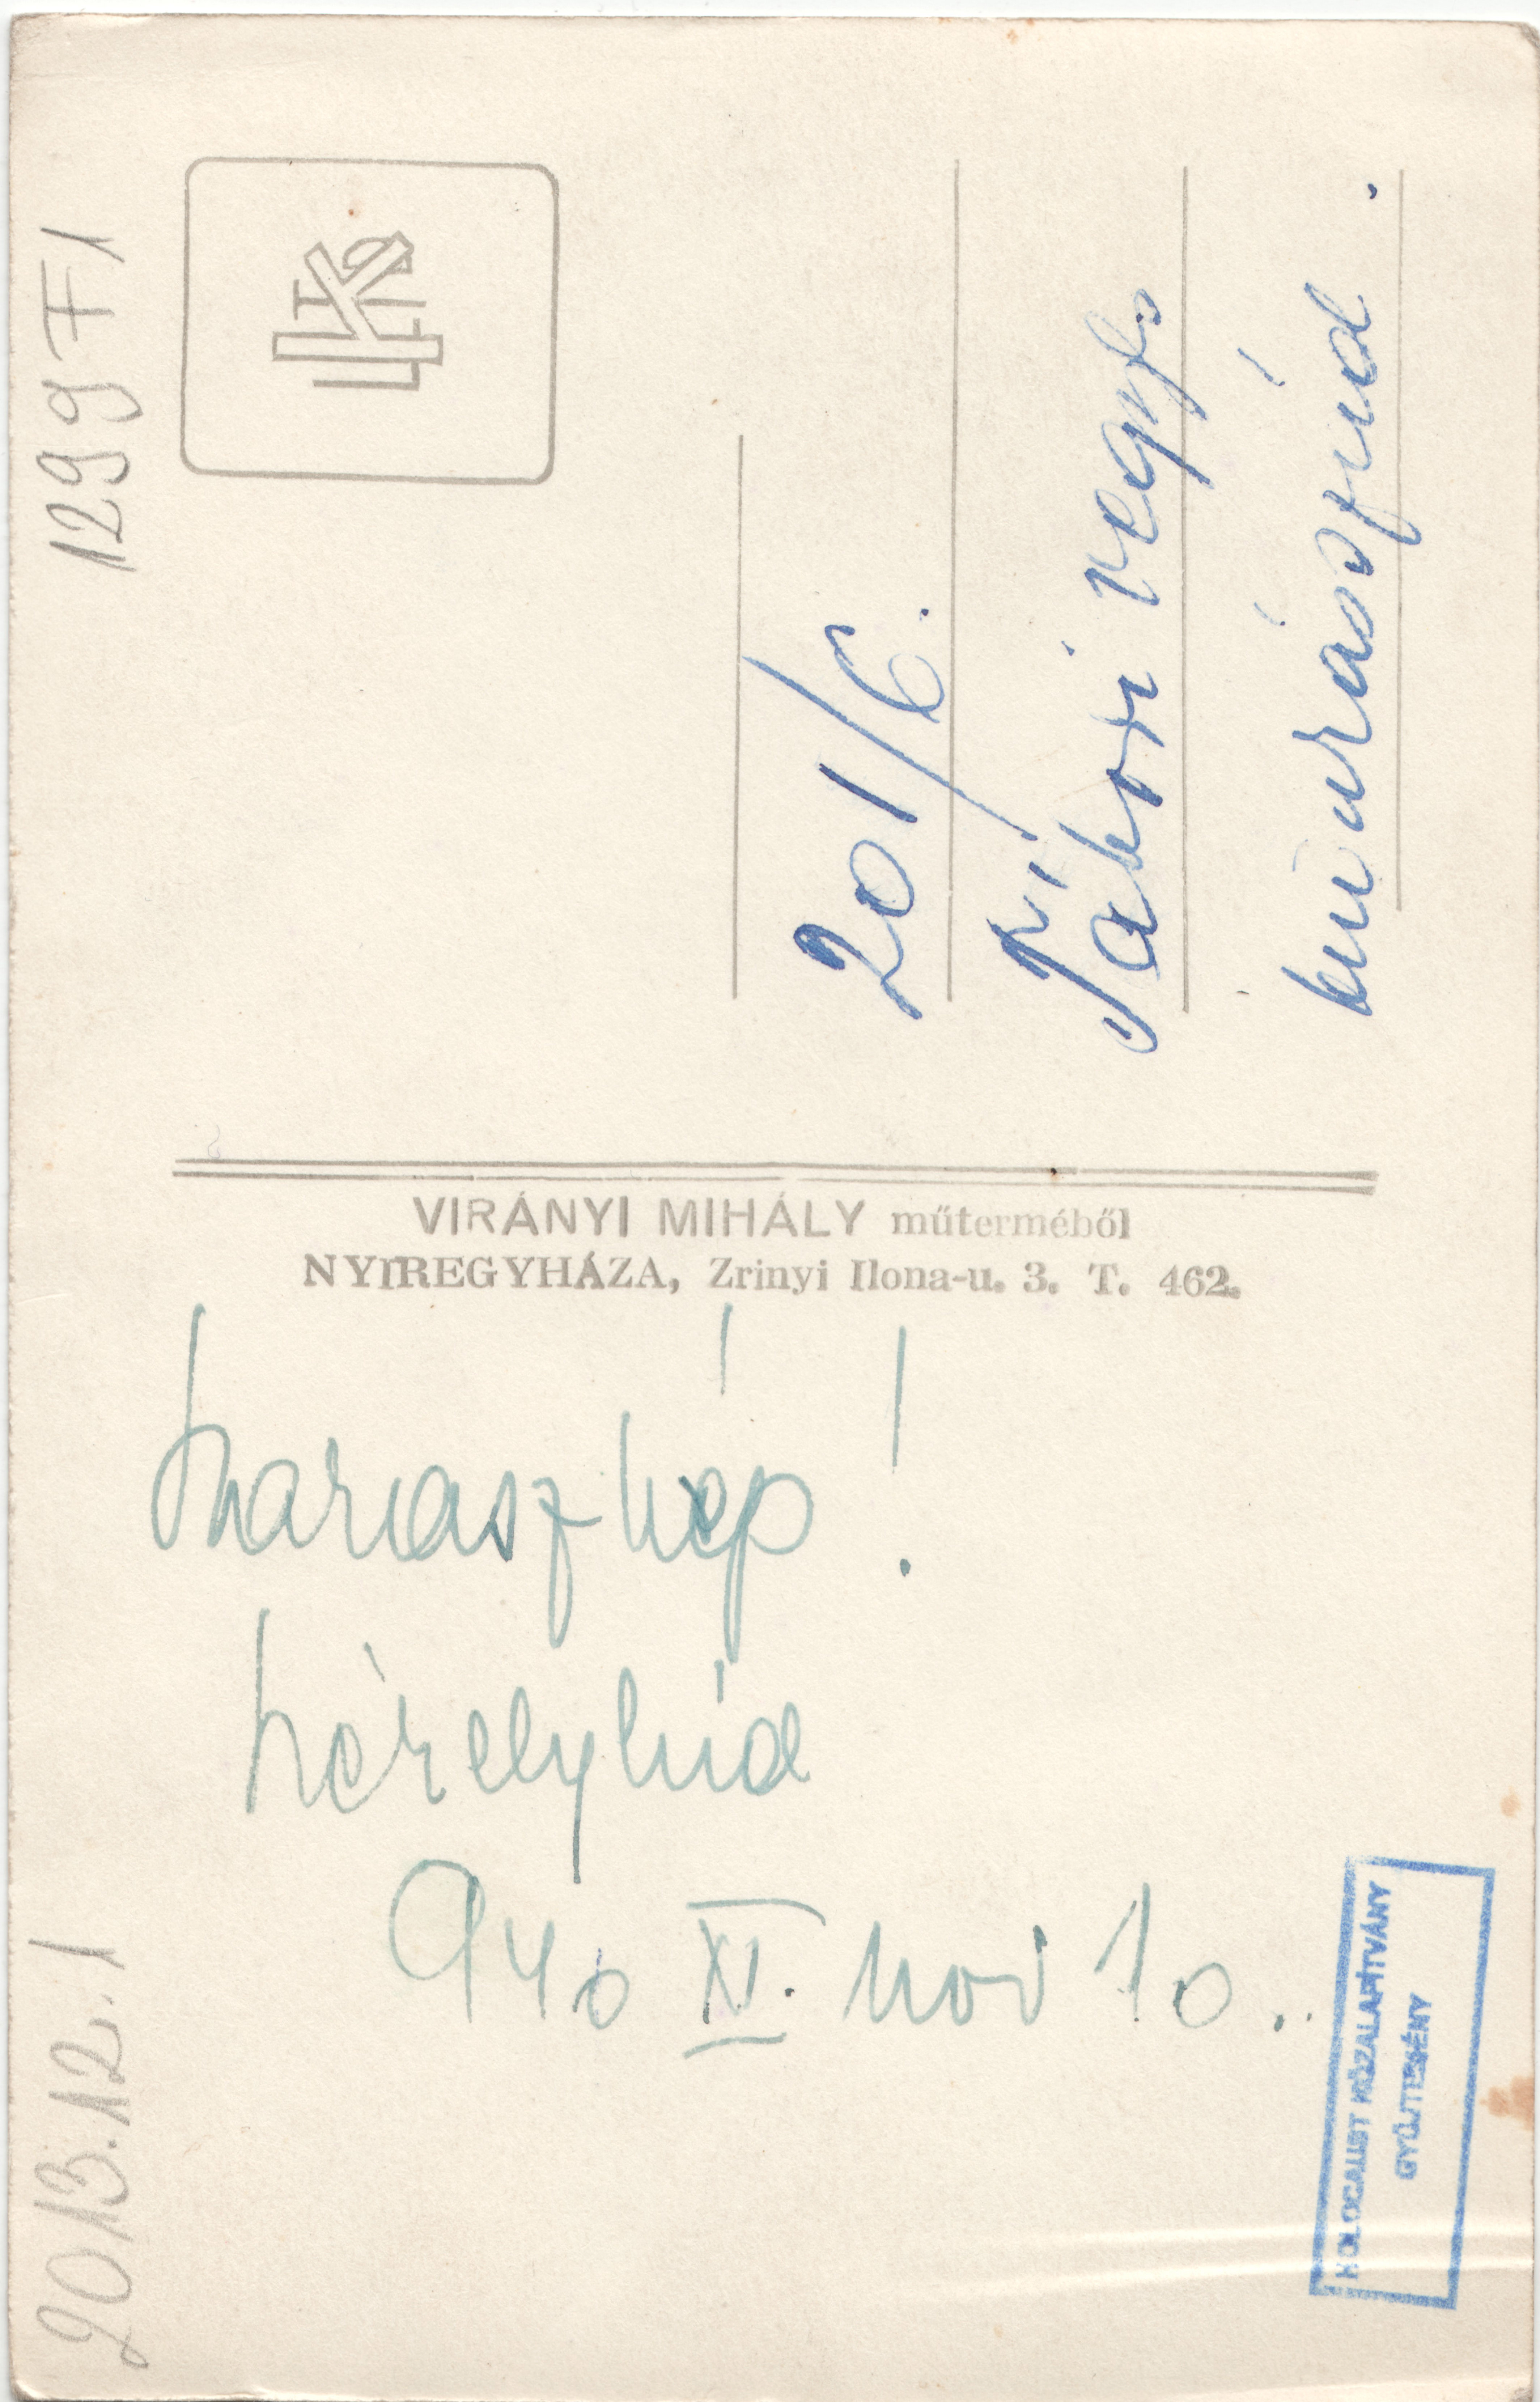 1299 F1
201/6.
Tábori vegyes
munkásszázad.
VIRÁNYI MIHÁLY műterméből
NYIREGYHÁZA, Zrinyi Ilona-u. 3. T. 462.
kép!
Királyhid
940 XI. nov 10.
2013.12.1
HOLOCAUST KÖZALAPÍTVÁNY
GYŰJTEMÉNY